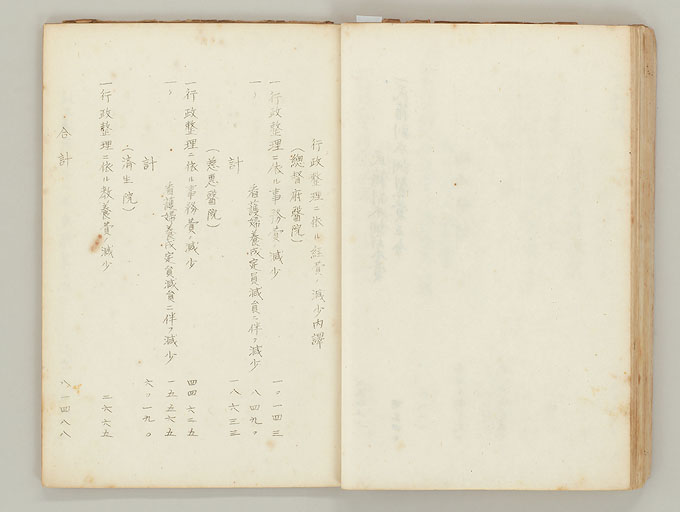 行政整理ニ依ル経費ノ減少内譯
(總督府醫院)
一行政整理ニ依ル事務費ノ減少 一〇一四三
一〃 看護婦養成定員減員ニ伴フ減少 八四九〇
計 一八六三三
(慈惠醫院)
一行政整理ニ依ル事務費ノ減少 四四六二五
一〃 看護婦養成定員減員ニ伴フ減少 一五五六五
計 六〇一九〇
(濟生院)
一行政整理ニ依ル教養費ノ減少 二六六五
合計 八一四八八